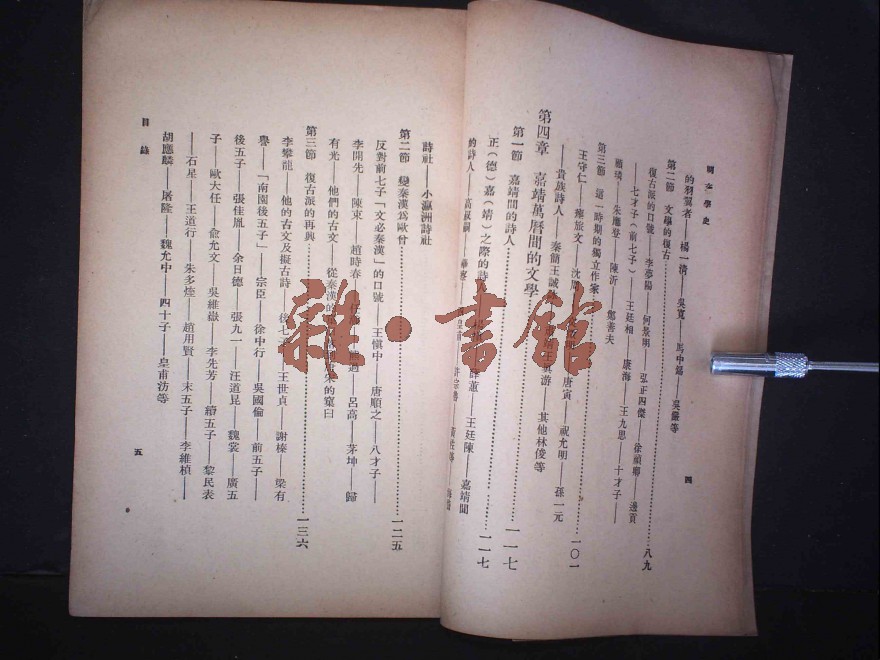 明文學史
的羽翼者——楊一清——吳寬——馬中錫——吳儼等
第二節 文學的復古……八九
復古派的口號——李夢陽——何景明——弘正四傑——徐禎卿——邊貢
——七才子(前七子)——王廷相——康海——王九思——十才子——
顧璘——朱應登——陳沂——鄭善夫
第三節 這一時期的獨立作家……一〇一
王守仁——
唐寅——祝允明——孫一元
——貴族詩人——秦簡王誠
其他林俊等
第四章 嘉靖萬曆間的文學……一一七
第一節 嘉靖間的詩人……一一七
正(德)嘉(靖)之際的詩人
王廷陳——嘉靖間
的詩人——高叔嗣
四
詩社——小瀛洲詩社
第二節 變秦漢爲歐曾……一二五
反對前七子「文必秦漢」的口號——王愼中——唐順之——八才子——
李開先——陳束——趙時春——
呂高——茅坤——歸
有光——他們的古文——從秦漢的
的窠臼
第三節 復古派的再興……一三六
李攀龍——他的古文及擬古詩——後七
王世貞——謝榛——梁有
譽——「南園後五子」——宗臣——徐中行——吳國倫——前五子——
後五子——張佳胤——余日德——張九一——汪道昆——魏裳——廣五
子——歐大任——俞允文——吳維嶽——李先芳——續五子——黎民表
——石星——王道行——朱多煃——趙用賢——末五子——李維楨——
胡應麟——屠隆——魏允中——四十子——皇甫汸等
目錄
五
雜·書館